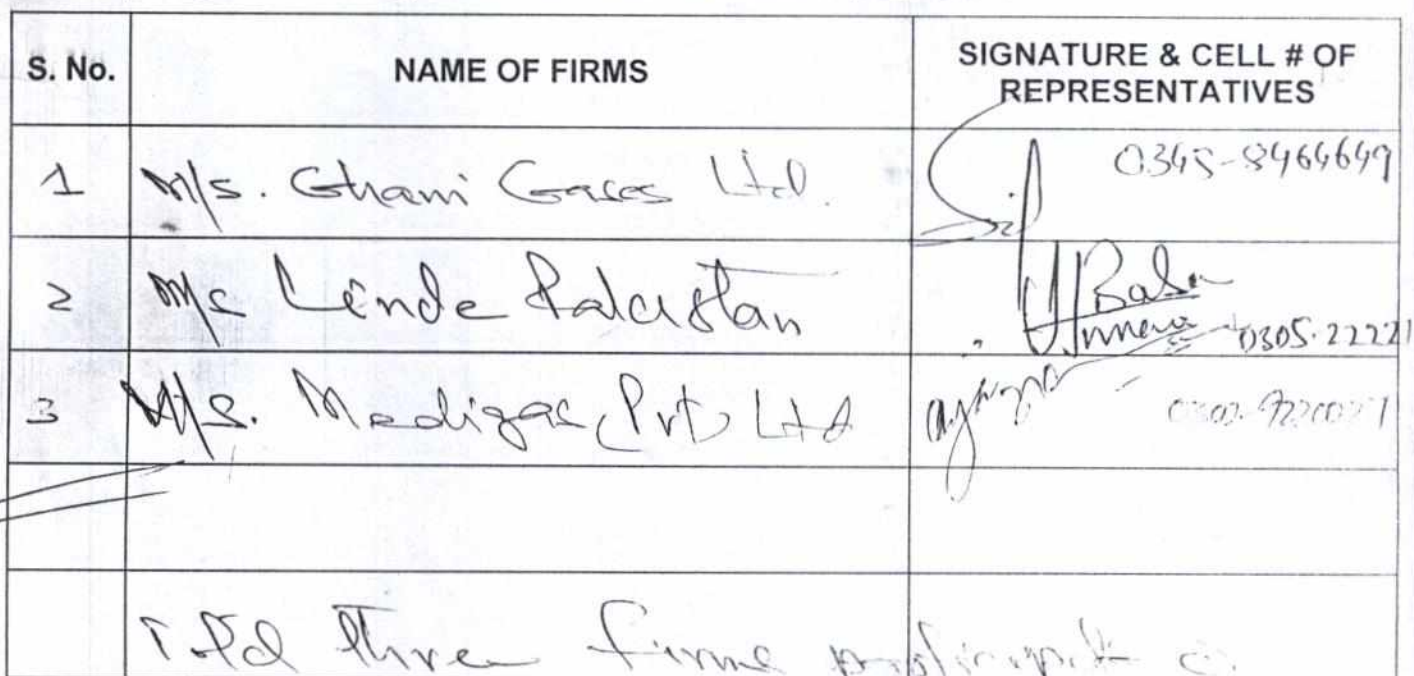 S. No. NAME OF FIRMS SIGNATURE & CELL # OF
REPRESENTATIVES
1 M/s. Ghani Gases Ltd. 0345-8464649
2 M/s Linde Pakistan 0305-22221
3 M/s. Medigas (Pvt) Ltd
three firms